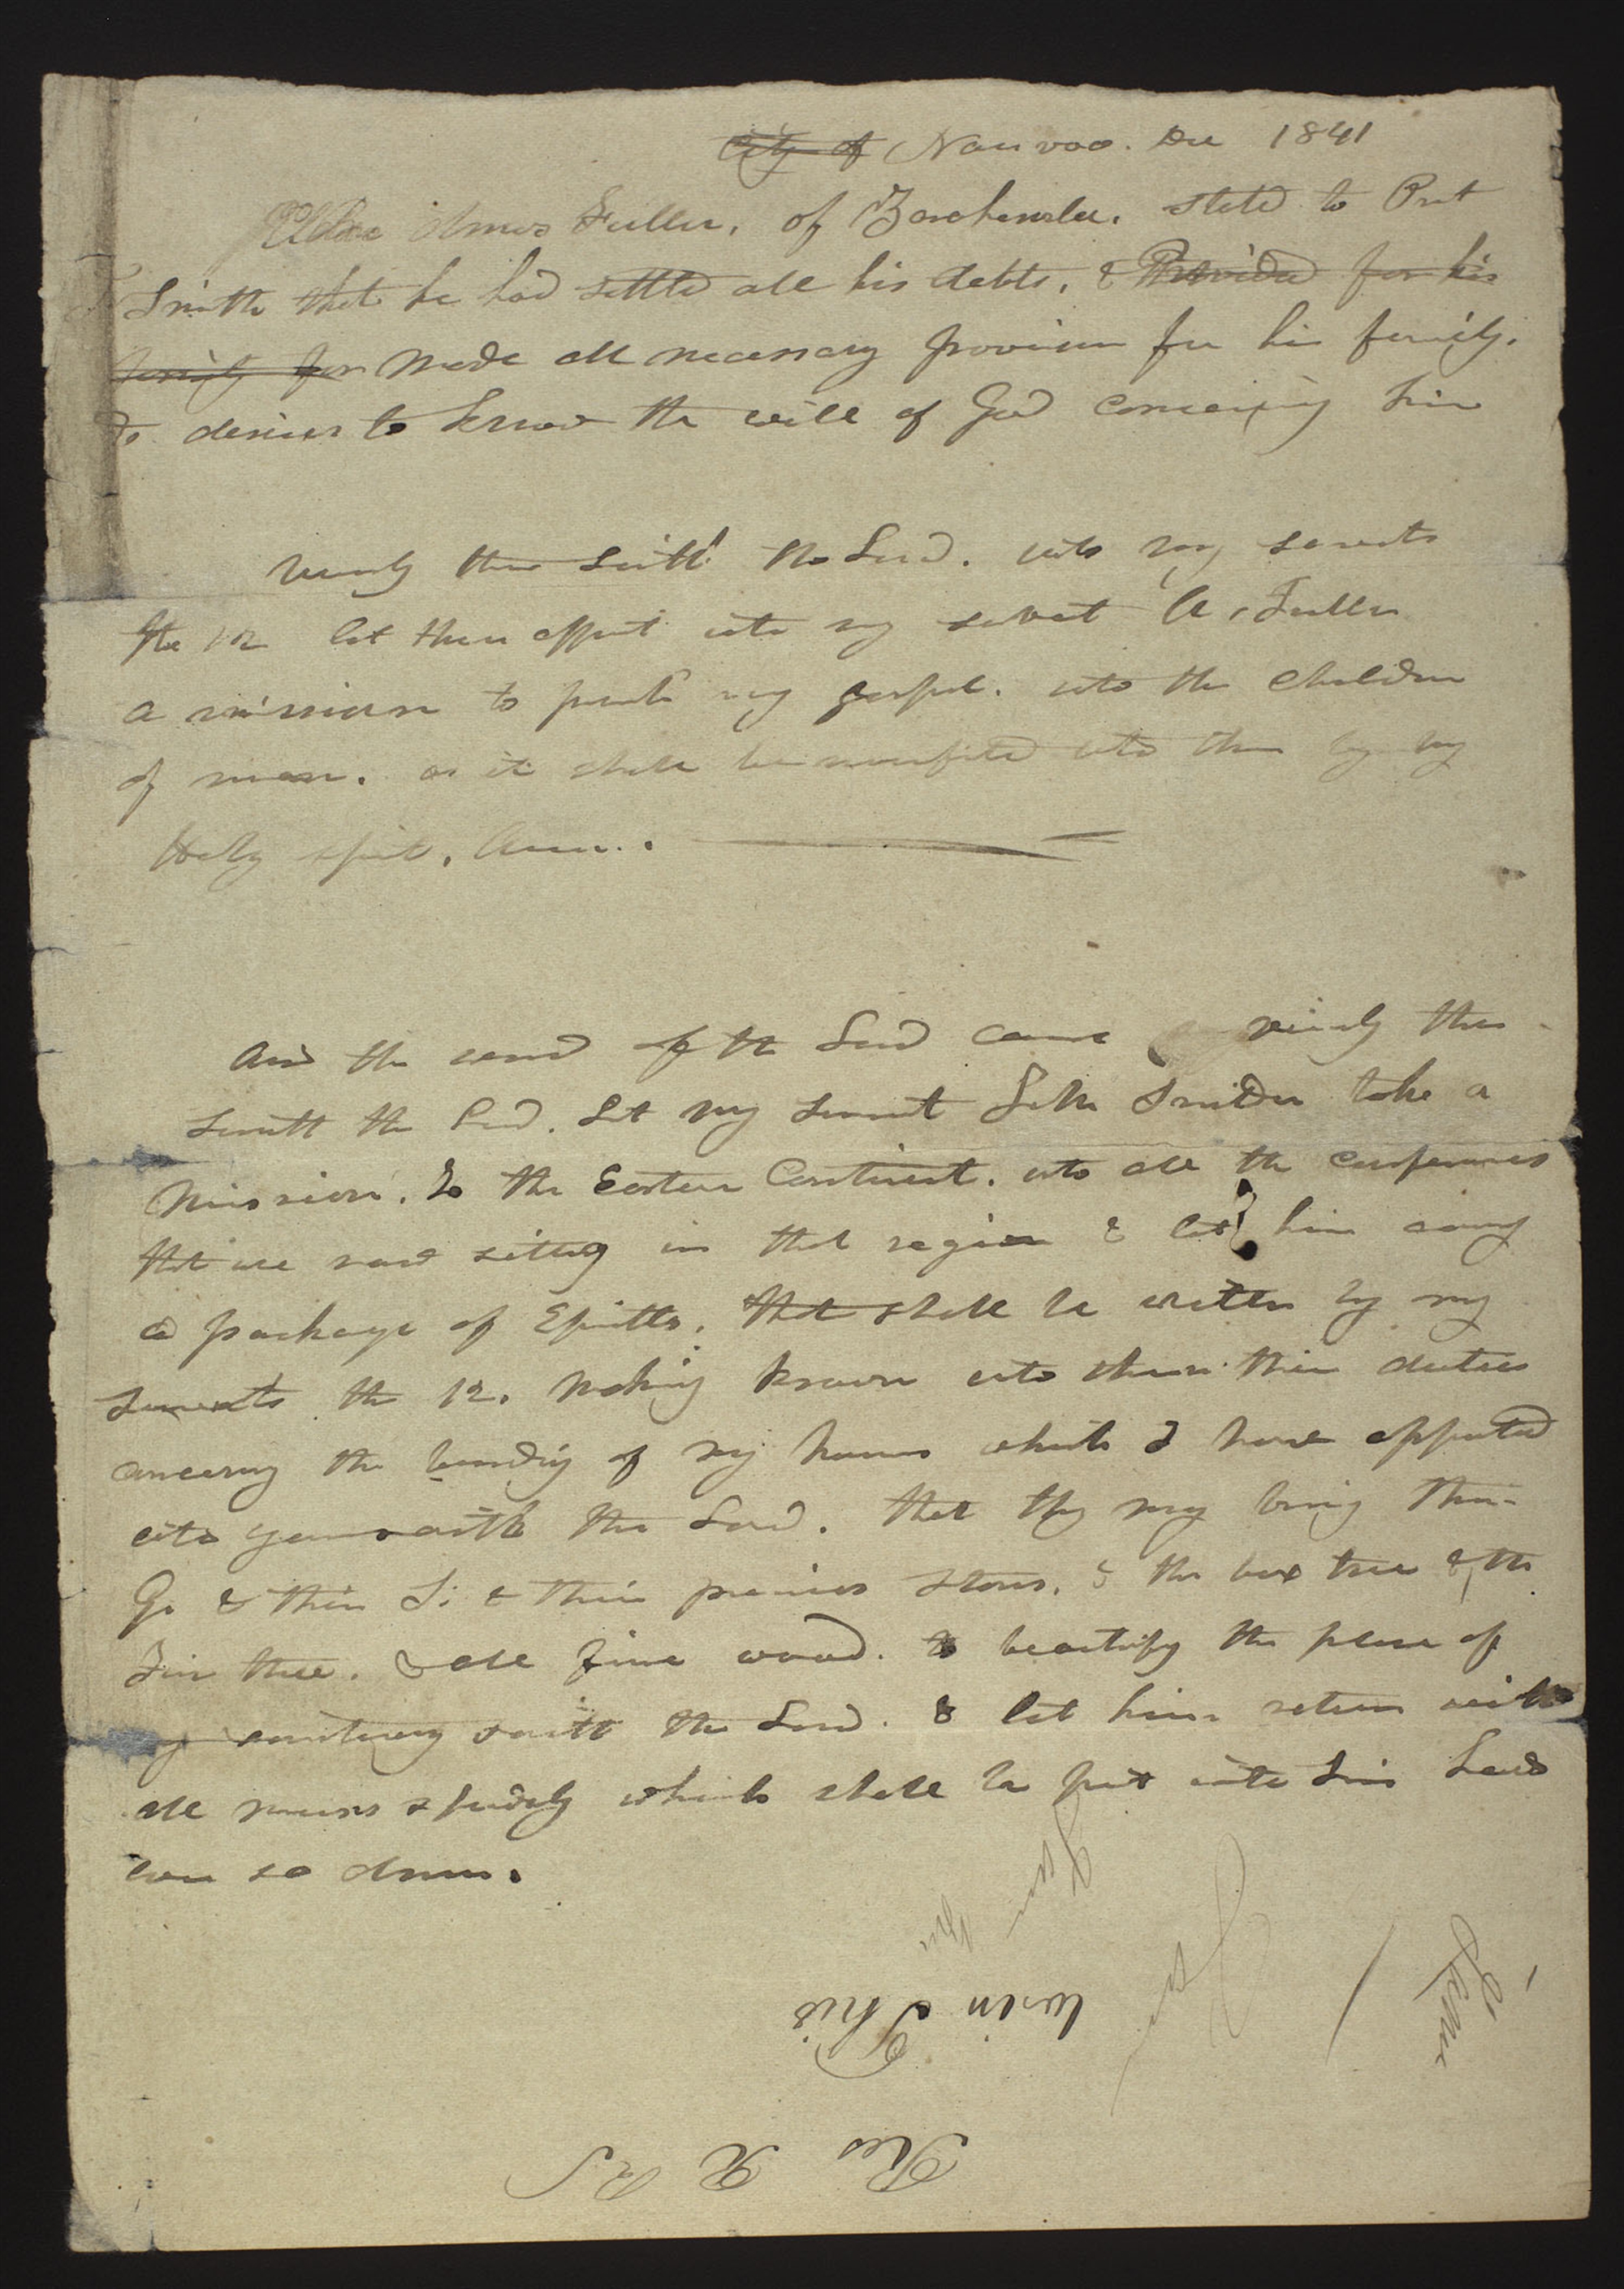 City of Nauvoo. Dec 1841
Elder Amos Fuller, of Zarahemla. stated to Prst
Smith that he had settled all his debts, & Provided for his
family for made all necessary provision for his family.
& desires to know the will of God concerning him
verily thus saith the Lord. unto my servants
the 12 let them appoint unto my servant A, Fuller
a mission to preach my gospel. unto the children
of men. as it shall be manifested unto them by my
Holy spirit, Amen.
And the word of the Lord came verily thus
saith the Lord. Let my servant John Snider take a
Mission. to the Eastern Continent. unto all the conferences
that are now sitting in that region & let him carry
a package of Epistles. that shall be written by my
servants the 12. making known unto them their duties
concerning the building of my houses which I have appointed
unto you saith the Lord. that they may bring their
Go & their Si & their precious stones. & the box tree & the
Fir tree. & all fine wood. to beautify the place of
my sanctuary saith the Lord. & let him return with
all means speedily which shall be put into his hands
even so Amen.
This
Res R R